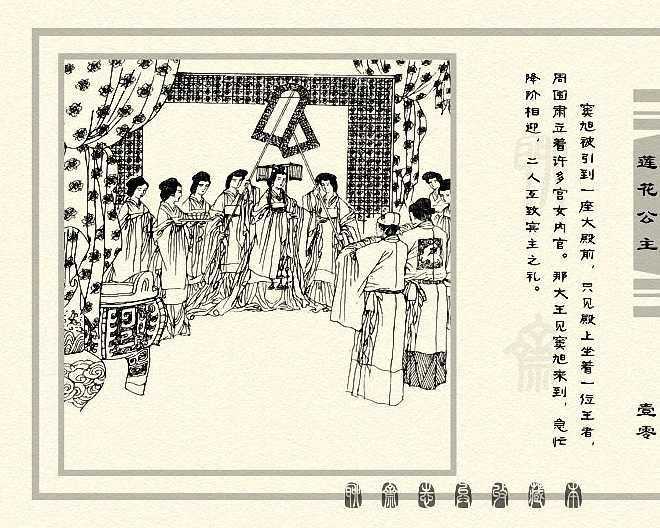 窦旭被引到一座大殿前，只见殿上坐着一位王者，
周围肃立着许多宫女内官。那大王见窦旭来到，急忙
降阶相迎，二人互致宾主之礼。
莲花公主
壹零
聊斋志异收藏本